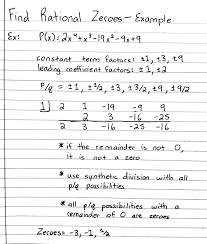 Find Rational Zeroes - Example
Ex: P(x) = 2x⁴ + x³ - 19x² - 9x + 9
constant term factors: ±1, ±3, ±9
leading coefficient factors: ±1, ±2
P/q = ±1, ±1/2, ±3, ±3/2, ±9, ±9/2
1| 2 1 -19 -9 9
2 3 -16 -25
2 3 -16 -25 -16
* if the remainder is not 0,
it is not a zero
* use synthetic division with all
p/q possibilities
* all p/q possibilities with a
remainder of 0 are zeroes
Zeroes = -3, -1,